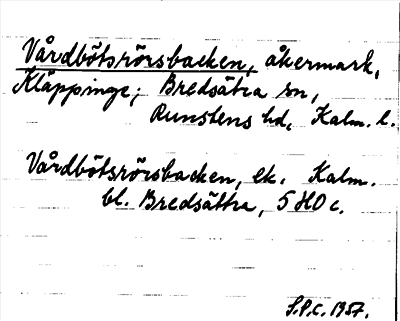 Vårdbötsrörsbacken, åkermark,
Kläppinge; Bredsätra sn,
Runstens hd, Kalm. l.
Vårdbötsrörsbacken, ek. Kalm.
bl. Bredsättra, 5 H0 c.
S.P.C. 1957.